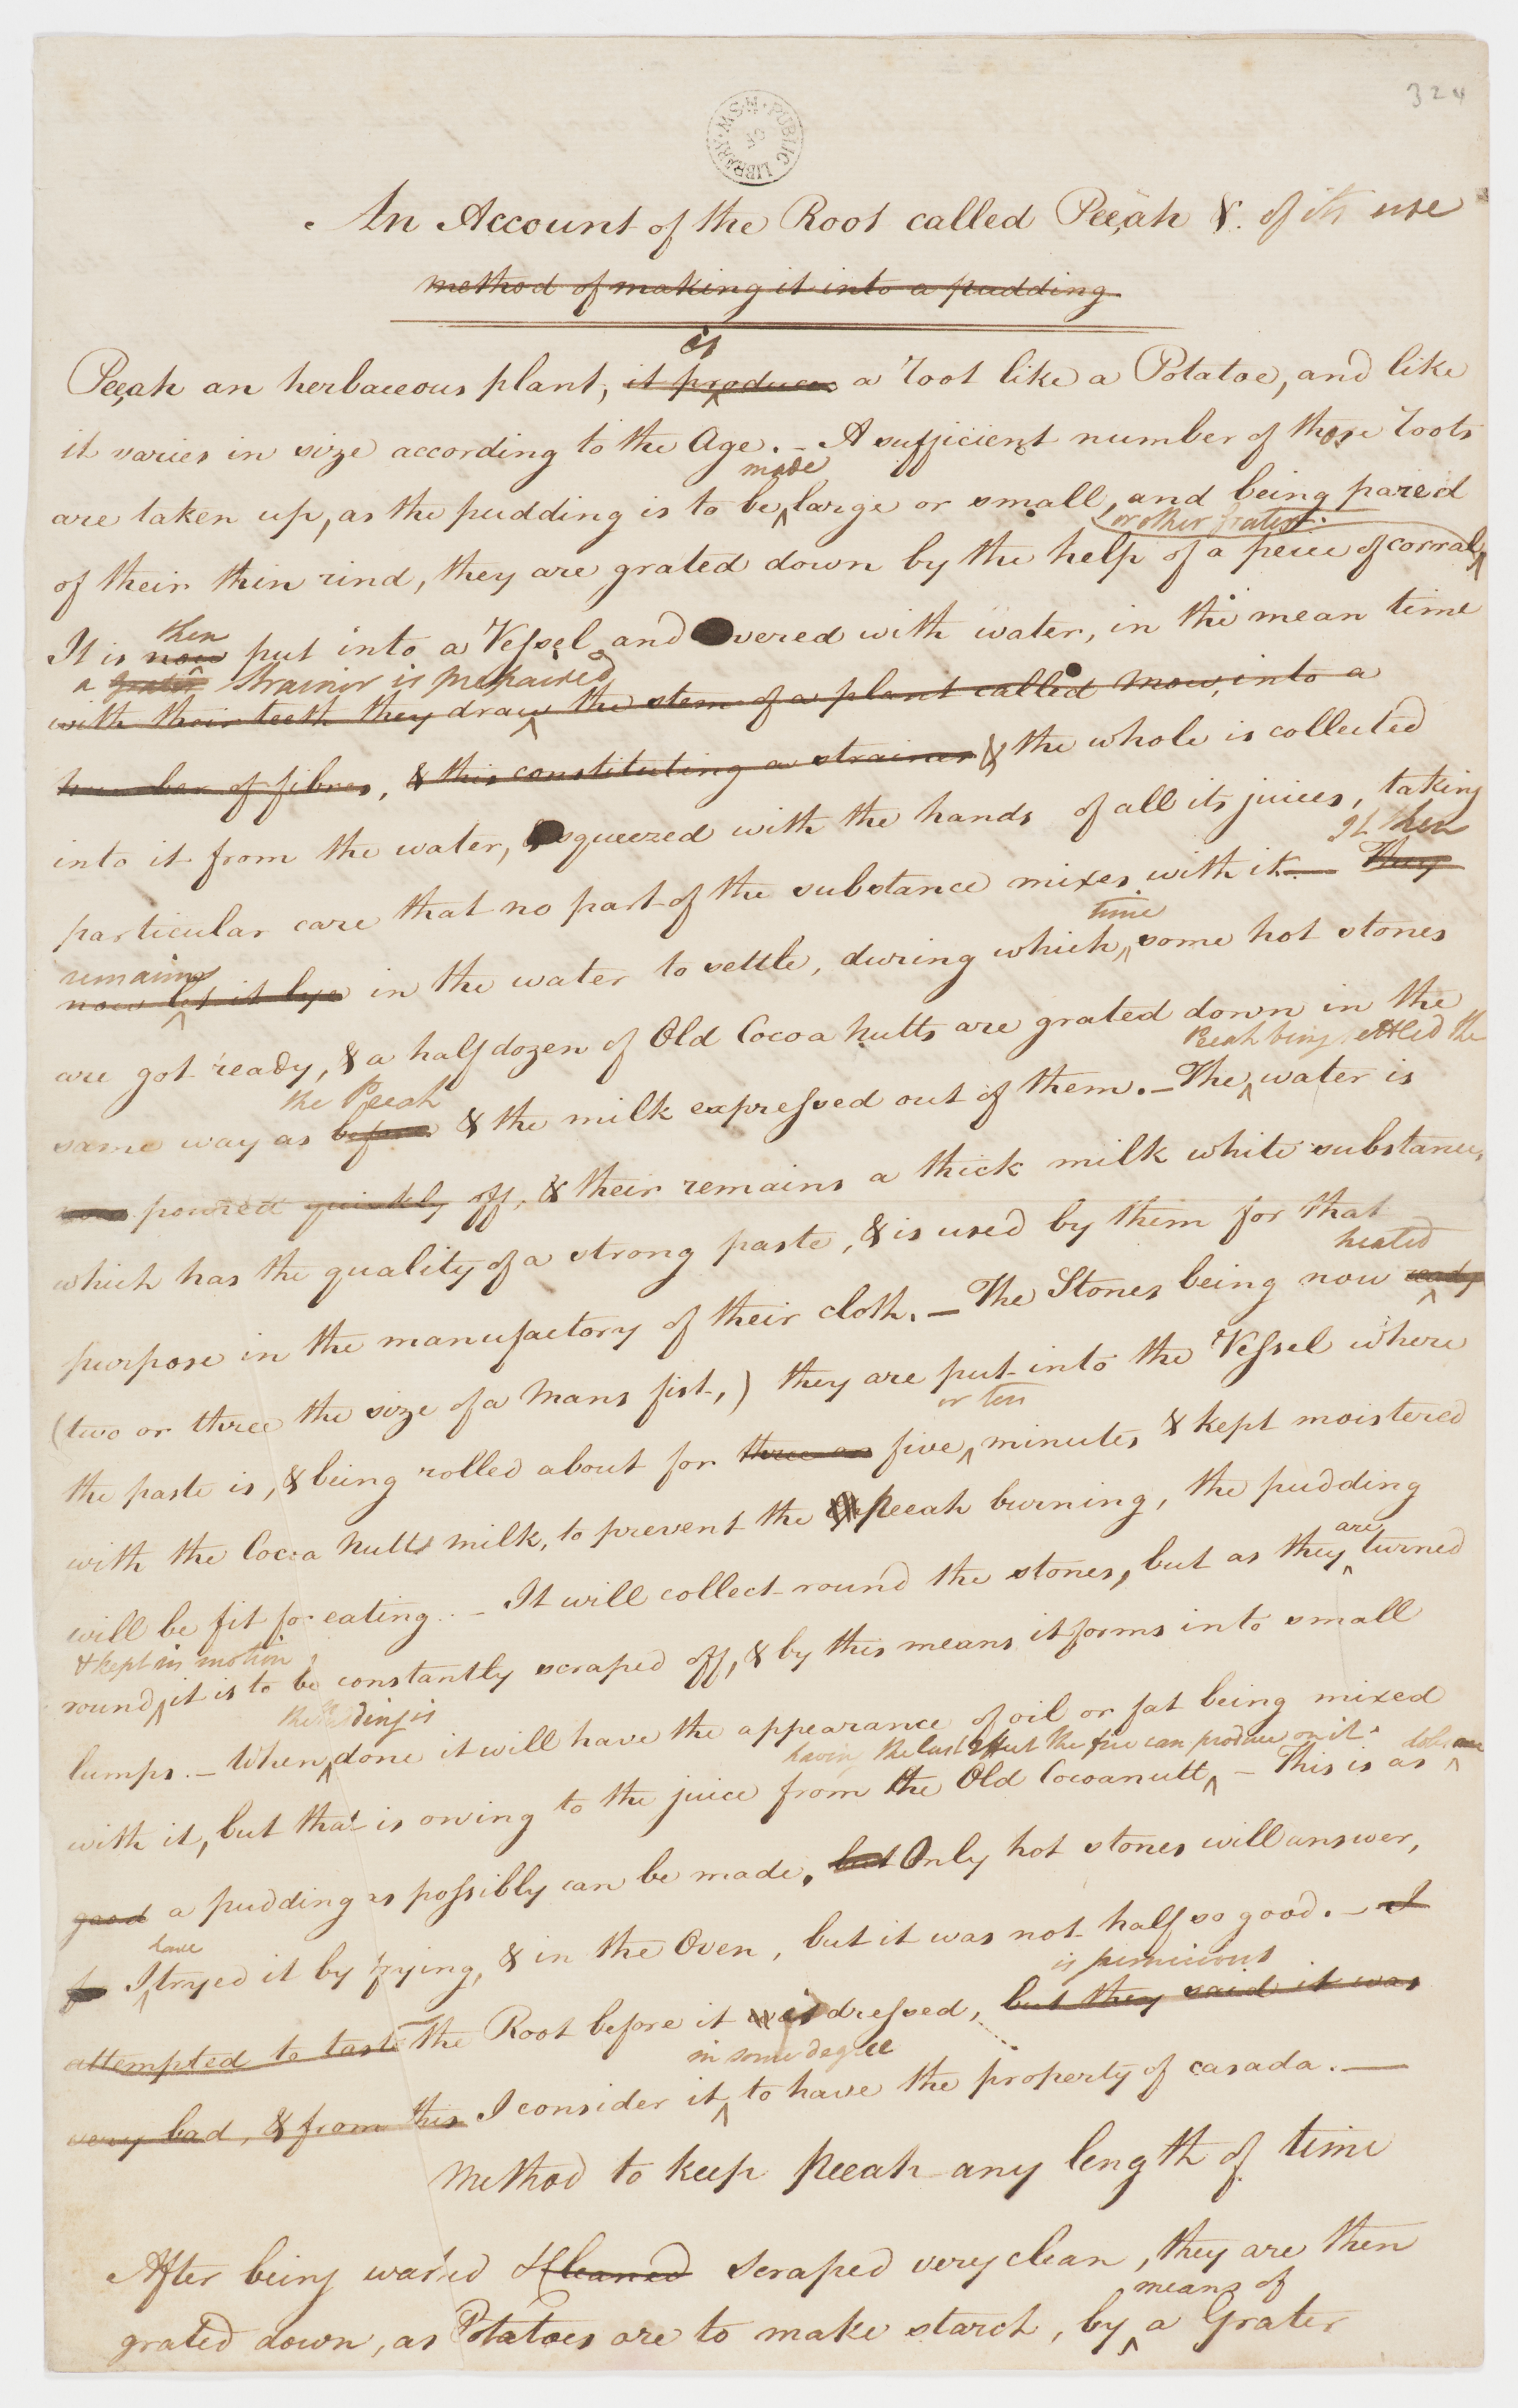 324
PUBLIC LIBRARY N.S.W.
An Account of the Root called Peeah & of its use
method of making it into a pudding
is
Peeah an herbaceous plant, it produces a root like a Potatoe, and like
it varies in size according to the Age. - A sufficient number of these roots
made
are taken up, as the pudding is to be large or small, and being pared
or other grater.
of their thin rind, they are grated down by the help of a peice of corral
then
It is now put into a Vessel and covered with water, in the mean time
a grater Strainer is prepaired
with their teeth they draw the stem of a plant called Mow, into a
number of fibres, & this constituting a strainer & the whole is collected
into it from the water, squeezed with the hands of all its juices, taking
It then
particular care that no part of the substance mixes with it - They
remains
time
now let it lye in the water to settle, during which some hot stones
are got ready, & a half dozen of Old Cocoa nutts are grated down in the
the Peeah
Peeah being settled the
same way as before & the milk expressed out of them. - The water is
now poured quickly off, & their remains a thick milk white substance,
which has the quality of a strong paste, & is used by them for that
heated
purpose in the manufactory of their cloth. - The Stones being now ready
(two or three the size of a Mans fist,) they are put into the Vessel where
or ten
the paste is, & being rolled about for three or five minutes & kept moistered
with the Cocoa Nutts milk, to prevent the Peeah burning, the pudding
are
will be fit for eating. - It will collect round the stones, but as they turned
& kept in motion
round, it is to be constantly scraped off, & by this means it forms into small
the Pudding is
lumps. - When done it will have the appearance of oil or fat being mixed
having the last effect the fire can produce on it.
with it, but that is owing to the juice from the Old Cocoanutt - This is as
good a pudding as possibly can be made, but Only hot stones will answer,
have
for I tryed it by frying, & in the Oven, but it was not half so good. - I
is pernicious
attempted to taste The Root before it is dressed, but they said it was
in some degree
very bad, & from this I consider it to have the property of casada. -
Method to keep Peeah any length of time
After being washed & Cleaned scraped very clean, they are then
means of
grated down, as Potatoes are to make starch, by a Grater